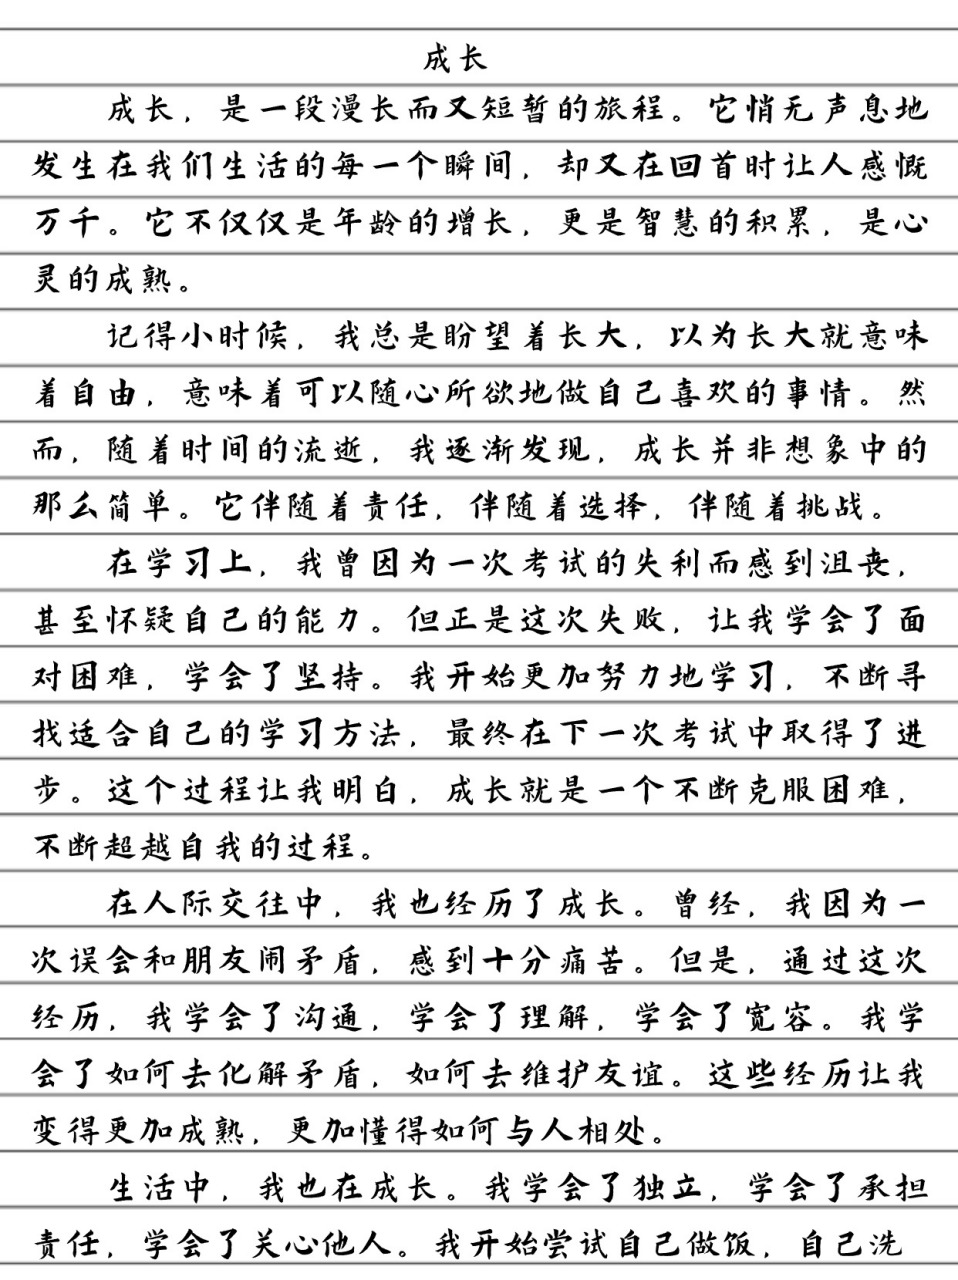 成长
成长，是一段漫长而又短暂的旅程。它悄无声息地
发生在我们生活的每一个瞬间，却又在回首时让人感慨
万千。它不仅仅是年龄的增长，更是智慧的积累，是心
灵的成熟。
记得小时候，我总是盼望着长大，以为长大就意味
着自由，意味着可以随心所欲地做自己喜欢的事情。然
而，随着时间的流逝，我逐渐发现，成长并非想象中的
那么简单。它伴随着责任，伴随着选择，伴随着挑战。
在学习上，我曾因为一次考试的失利而感到沮丧，
甚至怀疑自己的能力。但正是这次失败，让我学会了面
对困难，学会了坚持。我开始更加努力地学习，不断寻
找适合自己的学习方法，最终在下一次考试中取得了进
步。这个过程让我明白，成长就是一个不断克服困难，
不断超越自我的过程。
在人际交往中，我也经历了成长。曾经，我因为一
次误会和朋友闹矛盾，感到十分痛苦。但是，通过这次
经历，我学会了沟通，学会了理解，学会了宽容。我学
会了如何去化解矛盾，如何去维护友谊。这些经历让我
变得更加成熟，更加懂得如何与人相处。
生活中，我也在成长。我学会了独立，学会了承担
责任，学会了关心他人。我开始尝试自己做饭，自己洗